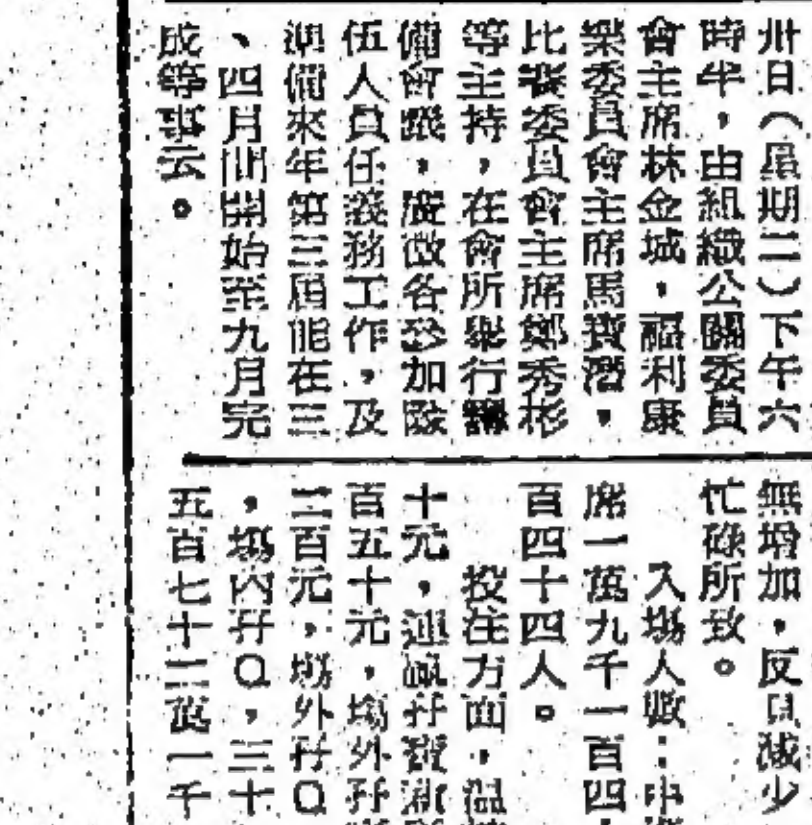 卅日（星期二）下午六
時半，由組織公關委員
會主席林金城，福利康
樂委員會主席馬寶潛，
比賽委員會主席鄭秀彬
等主持，在會所舉行籌
備會議，廣徵各參加隊
伍人員任義務工作，及
準備來年第三屆能在三
、四月間開始至九月完
成等事云。
無增加，反且減少
忙碌所致。
入場人數：中
席一萬九千一百四
百四十四人。
投注方面，溫
十元，連贏孖寶
百五十元，場外孖
二百元，場外孖Q
，場內孖Q，三十
五百七十二萬一千